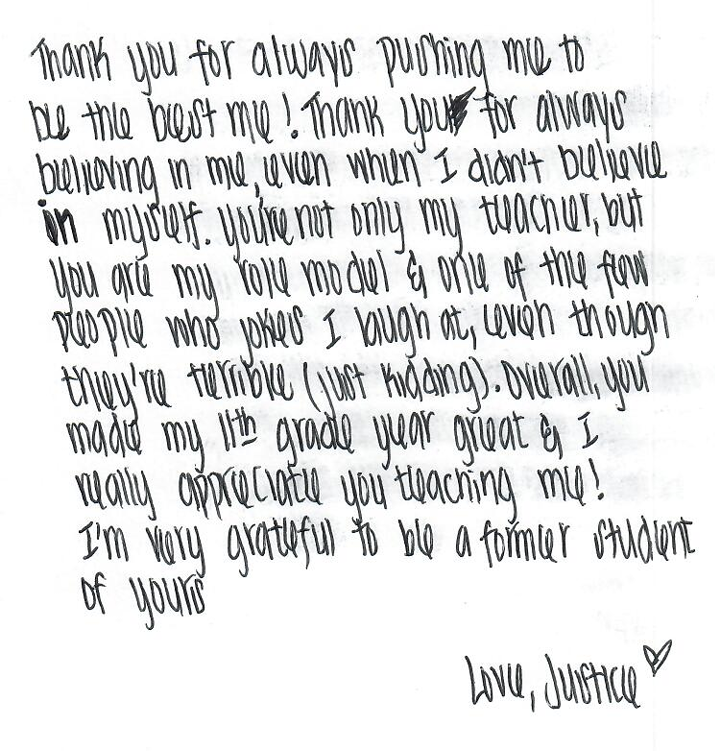 Thank you for always pushing me to
be the best me! Thank you for always
believing in me, even when I didn't believe
in myself. you're not only my teacher, but
you are my role model & one of the few
people who jokes I laugh at, even though
they're terrible (just kidding). Overall, you
made my 11th grade year great & I
really appreciate you teaching me!
I'm very grateful to be a former student
of yours
Love, Justice